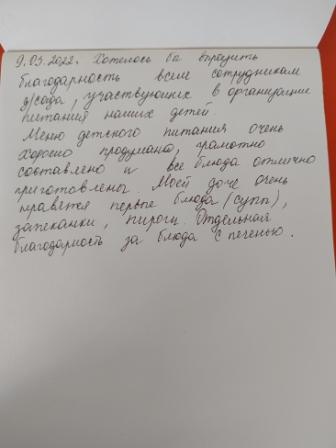 9.03.2022. Хотелось бы выразить
благодарность всем сотрудникам
д/сада, участвующих в организации
питания наших детей.
Меню детского питания очень
хорошо продумано, грамотно
составлено и все блюда отлично
приготовлены. Моей доче очень
нравятся первые блюда (супы),
запеканки, пироги. Отдельная
благодарность за блюда с печенью.